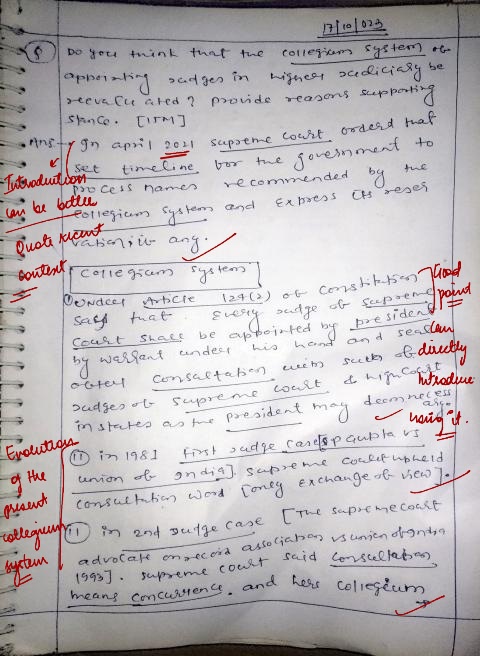 17/10/023
Q Do you think that the collegium system of
appointing Judges in higher Judiciary be
reevaluated? provide reasons supporting
stance. [15M]
Ans- In april 2021 supreme court orderd that
set timeline for the government to
process names recommended by the
collegium system and express its reser
vation, if any.
Introduction
can be better
Quote recent
content
Collegium System
(i) Under Article 124(2) of Constitution
said that every Judge of Supreme
court shall be appointed by president
by warrant under his hand and seal
after consultation with such of
Judges of Supreme court & High Court
in states as the president may deem necess
ary.
Good
point
can
directly
introduce
using it.
(ii) in 1981 first Judge case [SP Gupta vs
union of India]. Supreme court upheld
consultation word [only exchange of view].
(ii) in 2nd Judge case [The supreme court
advocate on record association vs union of India
1993]. Supreme court said consultation
means concurrence. and here collegium
Evolution
of the
present
collegium
system